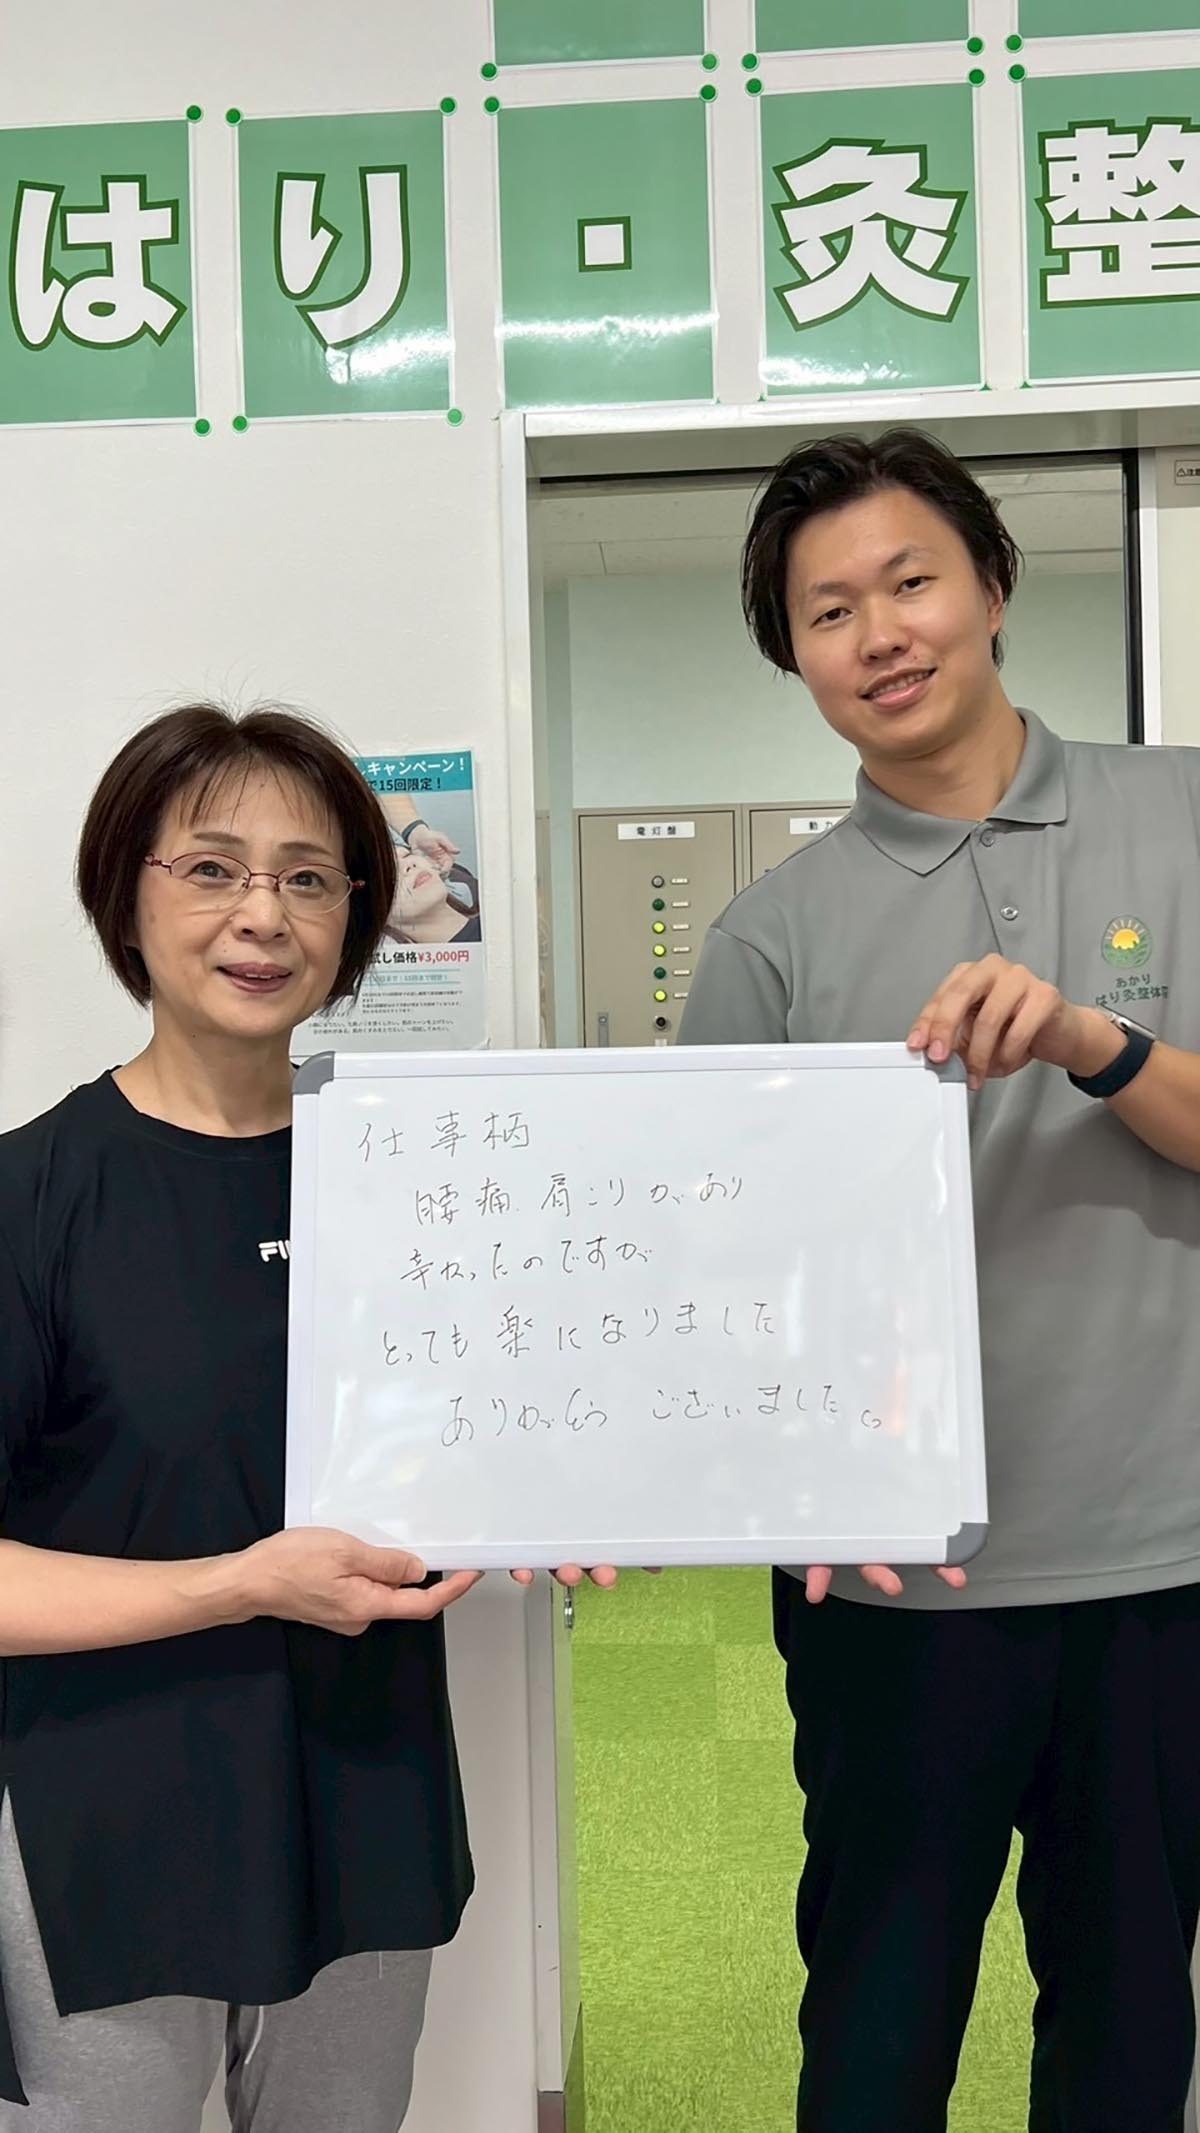 はり・灸整
しキャンペーン！
で15回限定！
試し価格¥3,000円
電灯盤
動力
注意
あかり
はり灸整体院
FI
仕事柄
腰痛、肩こりがあり
辛かったのですが
とっても楽になりました
ありがとうございました。